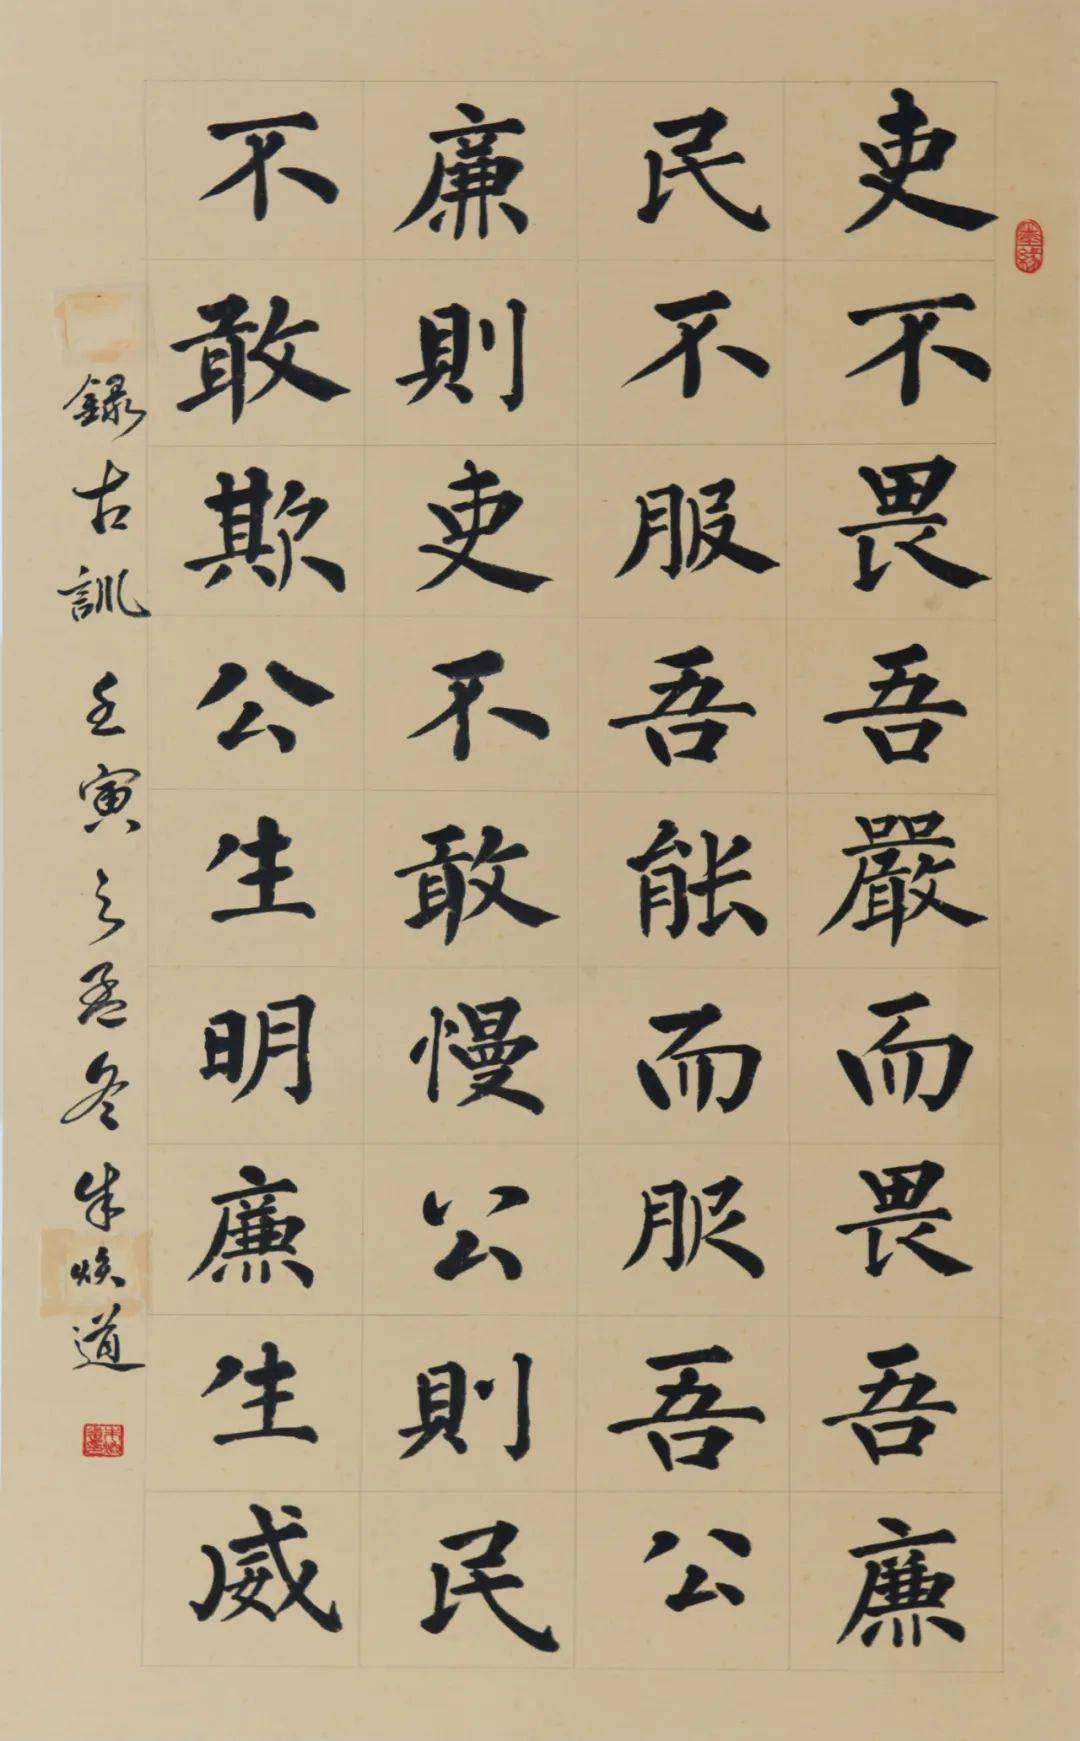 吏不畏吾嚴而畏吾廉
民不服吾能而服吾公
廉則吏不敢慢公則民
不敢欺公生明廉生威
録古訓壬寅之孟冬朱焕道